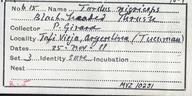 No 15. Name Turdus nigriceps
Black-headed Thrush
Collector P. Girard
Locality Tafi Vieja, Argentina (Tucuman)
Date 25-Nov-
Set 3 Identity Incubation
Nest
MVZ 10221